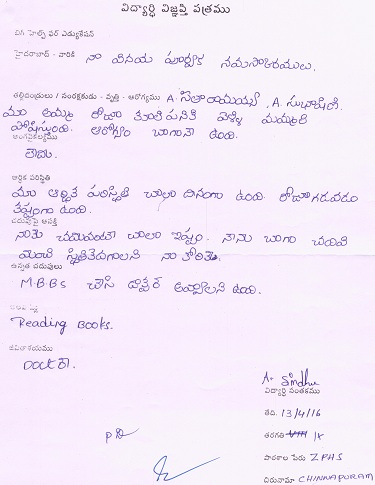 విద్యార్థి విజ్ఞప్తి పత్రము
బిగ్ హెల్ప్ ఫర్ ఎడ్యుకేషన్
హైదరాబాద్ - వారికి నా వినయ పూర్వక నమస్కారములు.
తల్లిదండ్రులు / సంరక్షకుడు - వృత్తి - ఆరోగ్యము A. సీతారామయ్య, A. సుభాషిణి
మా అమ్మ రోజూ కూలి పనికి వెళ్ళి మమ్మల్ని
పోషిస్తుంది. ఆరోగ్యం బాగానే ఉంది.
అంగవైకల్యము
లేదు.
ఆర్థిక పరిస్థితి
మా ఆర్థిక పరిస్థితి చాలా దీనంగా ఉంది. రోజు గడవడం
కష్టంగా ఉంది.
చదువుపై ఆసక్తి
నాకు చదువంటే చాలా ఇష్టం. నాను బాగా చదివి
మంచి స్థితికెదగాలని నా కోరిక.
ఉన్నత చదువులు
M.B.B.S చేసి డాక్టర్ అవ్వాలని ఉంది.
Reading Books.
Doctor.
A. Sindhu
విద్యార్థి సంతకము
తేది. 13/4/16
తరగతి IX
పాఠశాల పేరు ZPHS
చిరునామా CHINNAPURAM